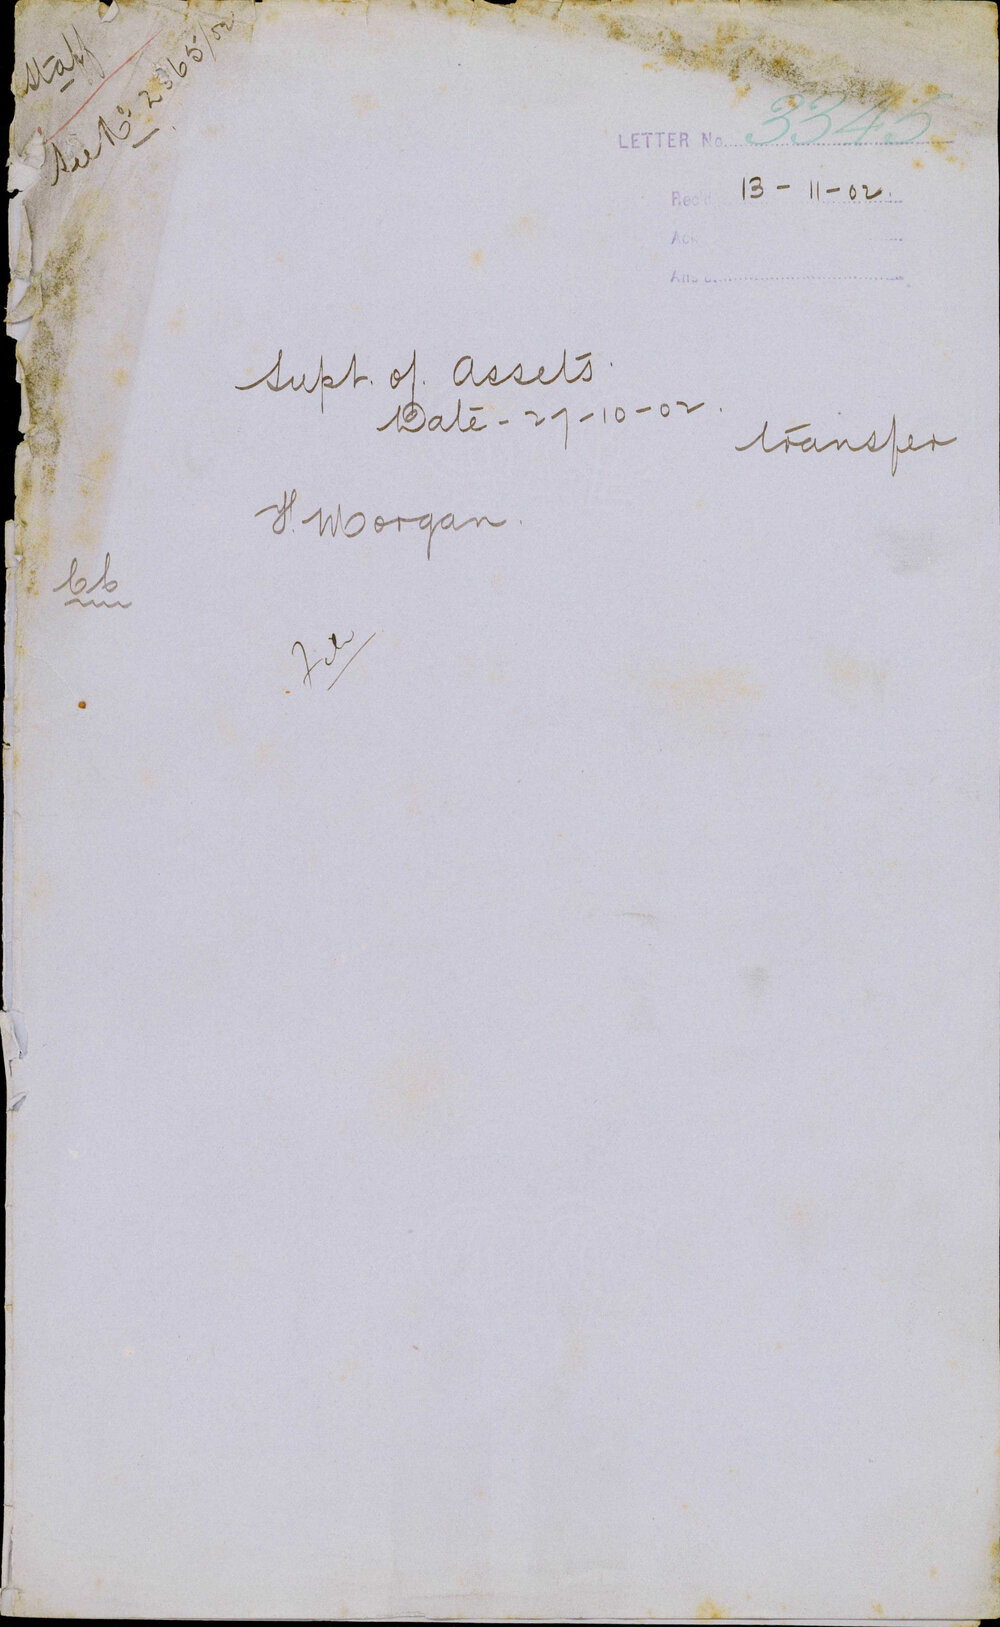 Staff
See No. 2365/02
LETTER No. 3345
Rec'd 13 - 11 - 02.
Ack
Ans'd
Supt. of. Assets.
Date - 27 - 10 - 02.
transfer
H. Morgan.
File